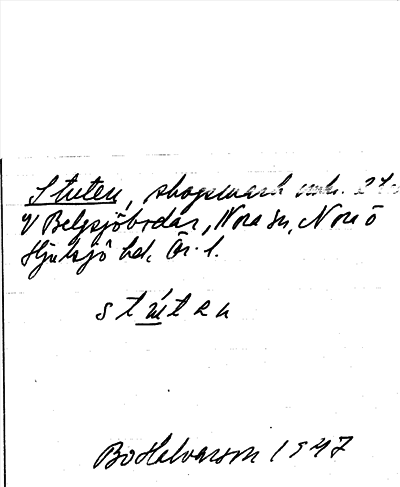 Stuten, skogsmark
V Belgsjöbodar, Nora sn, Nora o
Hjulsjö hd, Ör. l.
stúten
Bo Halvarson 1947